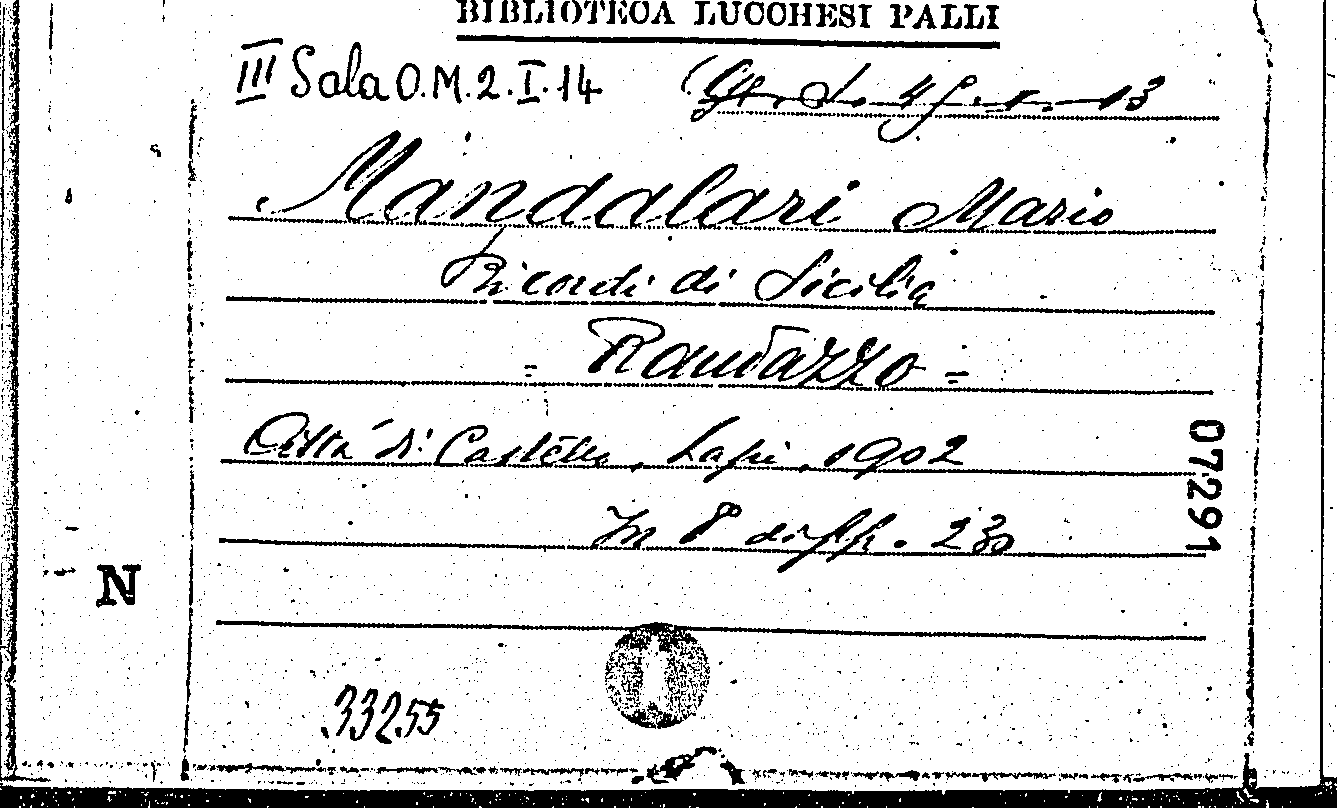 BIBLIOTECA LUCCHESI PALLI
III Sala O.M.2.I.14
Mandalari Mario
Ricordi di Sicilia
- Randazzo -
Città di Castello, Lapi, 1902
In 8° di pp. 230
07291
N
33255